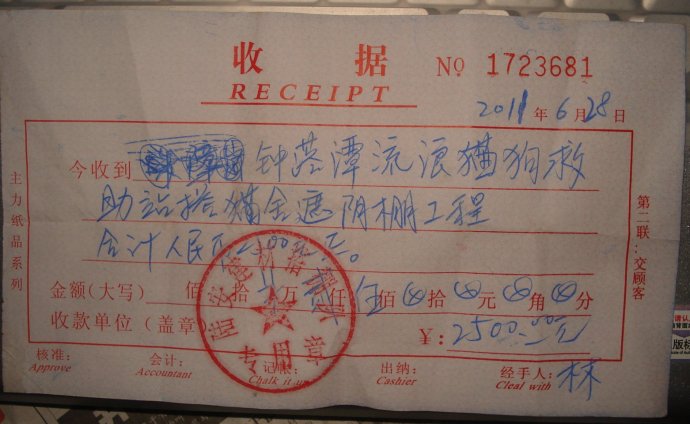 收据
RECEIPT
NO 1723681
2011年6月28日
今收到 钟落潭流浪猫狗救
助站搭猫舍遮阴棚工程
合计人民币2500元。
金额(大写) 佰 拾 万 仟 伍 佰 拾 元 角 分
收款单位(盖章
¥: 2500.00元
核准:
Approve
会计:
Accountant
记帐:
Chalk it up
出纳:
Cashier
经手人:
Cleal with
林
主力纸品系列
第二联:交顾客
专用章